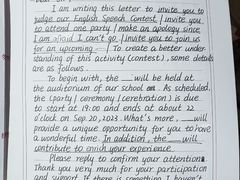 I am writing this letter to invite you to
judge our English Speech Contest / invite you
to attend one party / make an apology since
I am afraid I can't go / invite you to join us
for an upcoming ___. To create a better under
standing of this activity (contest), some details
are as follows.
To begin with, the ___ will be held at
the auditorium of our school on. As scheduled,
the (party / ceremony / cerebration) is due
to start at 19:00 and ends at about 22
o'clock on Sep 20, 2023. What's more, ___ will
provide a unique opportunity for you to have
a wonderful time. In addition, the ___ will
contribute to enrich your experience.
Please reply to confirm your attention.
Thank you very much for your participation
and support. If there is something I haven't